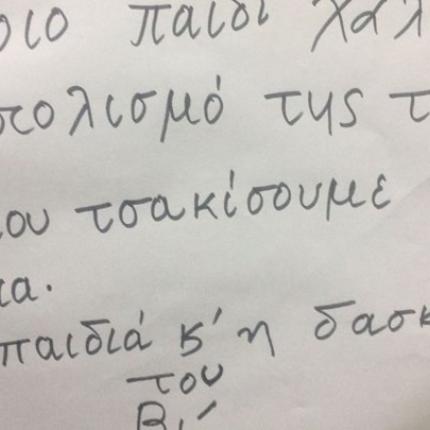 οιο παιδί χαλ
τολισμό της τ
ου τσακίσουμε
ια.
παιδιά κ' η δασκ
του
Β1'